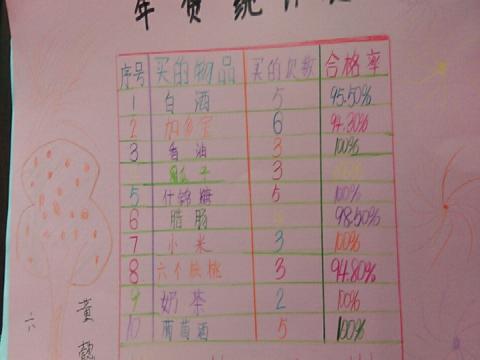 年货统计
序号 买的物品 买的次数 合格率
1 白酒 5 95.50%
2 加多宝 6 94.30%
3 香油 3 100%
瓜子 3
5 什锦糖 5 100%
6 腊肠 98.50%
7 小米 3 100%
8 六个核桃 3 94.80%
9 奶茶 2 100%
10 葡萄酒 5 100%
六
黄